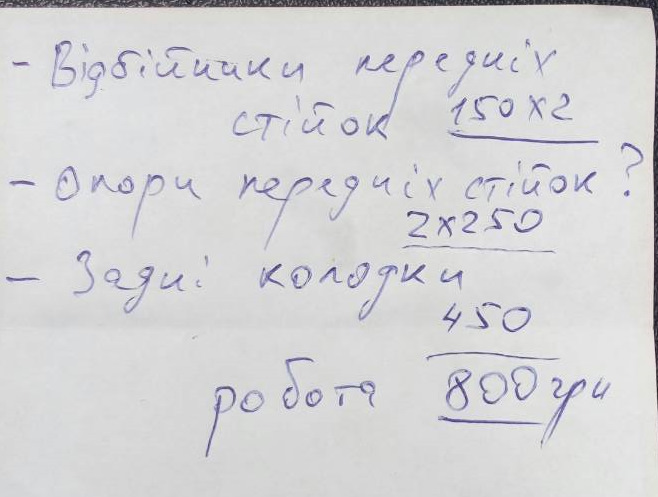 - Відбійники передніх
стійок 150х2
- Опори передніх стійок ?
2х250
- Задні колодки
450
робота 800 грн